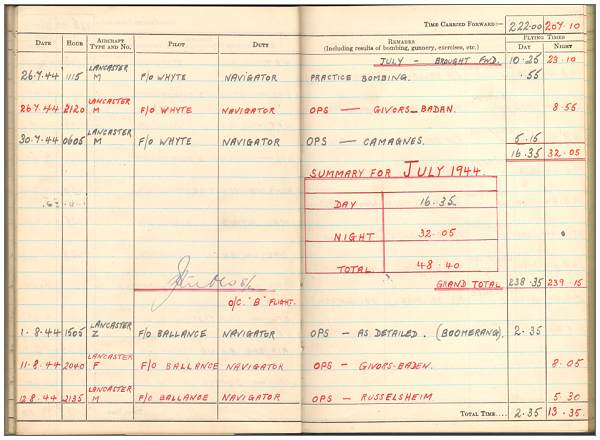 TIME CARRIED FORWARD:— 222.00 207.10
DATE HOUR AIRCRAFT TYPE AND NO. PILOT DUTY REMARKS (Including results of bombing, gunnery, exercises, etc.) FLYING TIMES DAY NIGHT
JULY — BROUGHT FWD. 10.25 23.10
26.7.44 1115 LANCASTER M F/O WHYTE NAVIGATOR PRACTICE BOMBING. .55
26.7.44 2120 LANCASTER M F/O WHYTE NAVIGATOR OPS — GIVORS-BADAN. 8.55
30.7.44 0605 LANCASTER M F/O WHYTE NAVIGATOR OPS — CAMAGNES. 5.15
16.35 32.05
SUMMARY FOR JULY 1944.
DAY 16.35
NIGHT 32.05
TOTAL 48.40
GRAND TOTAL 238.35 239.15
O/C. "B" FLIGHT.
1.8.44 1505 LANCASTER Z F/O BALLANCE NAVIGATOR OPS — AS DETAILED. (BOOMERANG). 2.35
11.8.44 2040 LANCASTER F F/O BALLANCE NAVIGATOR OPS — GIVORS-BADEN. 8.05
12.8.44 2135 LANCASTER M F/O BALLANCE NAVIGATOR OPS — RUSSELSHEIM 5.30
TOTAL TIME.... 2.35 13.35.